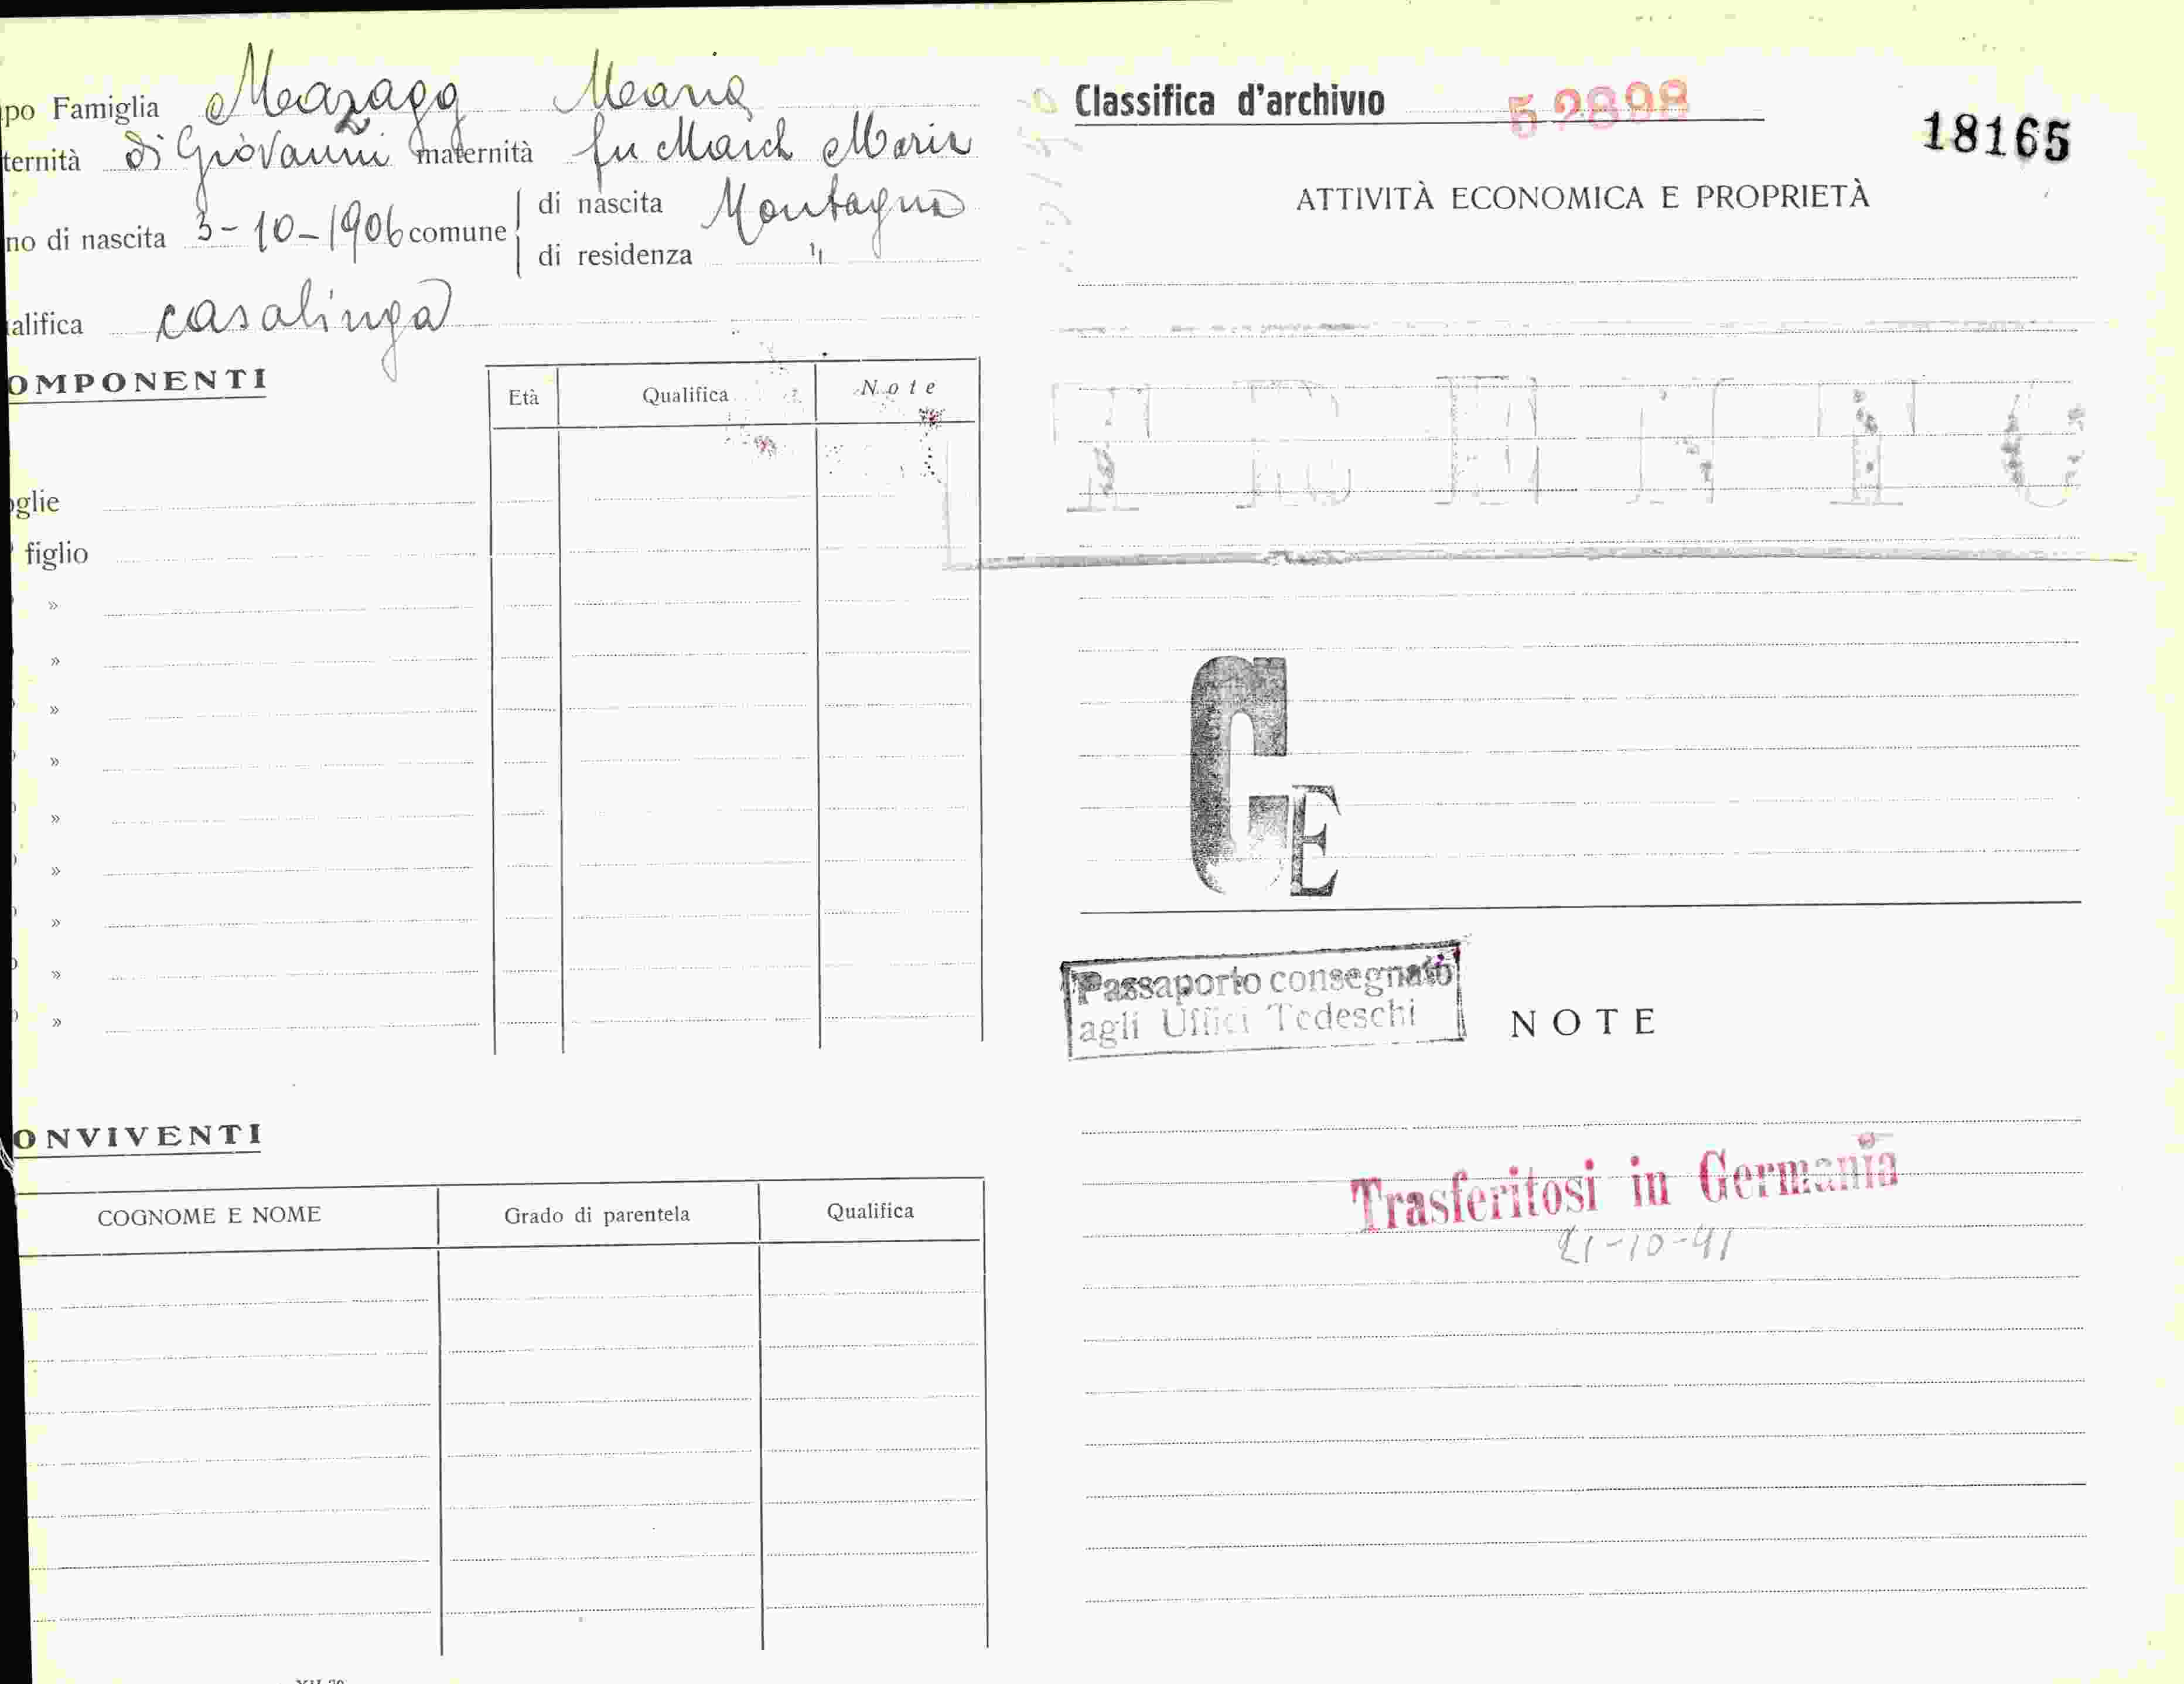 po Famiglia Mazagg Maria
ternità di Giovanni maternità fu March Maria
no di nascita 3-10-1906 comune di nascita Montagna
di residenza "
alifica casalinga
OMPONENTI
Età Qualifica Note
oglie
figlio
»
»
»
»
»
»
»
»
»
ONVIVENTI
COGNOME E NOME Grado di parentela Qualifica
Classifica d'archivio 52898
18165
ATTIVITÀ ECONOMICA E PROPRIETÀ
TRENTO
GE
Passaporto consegnato
agli Uffici Tedeschi
NOTE
Trasferitosi in Germania
21-10-41